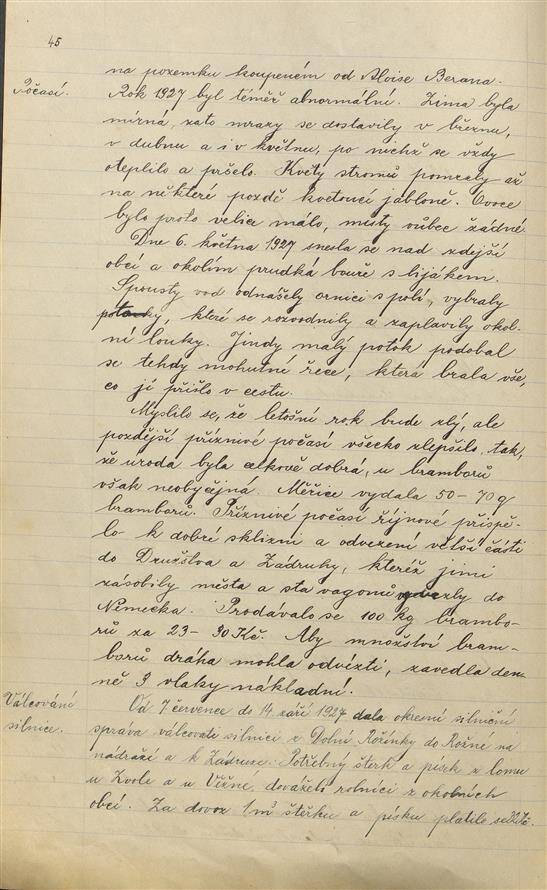 45
na pozemku koupeném od Aloise Berana.
Počasí.
Rok 1927 byl téměř abnormální. Zima byla
mírná, zato mrazy se dostavily v březnu,
v dubnu a i v květnu, po nichž se vždy
oteplilo a pršelo. Květy stromů pomrzly až
na některé pozdě kvetoucí jabloně. Ovoce
bylo proto velice málo, místy vůbec žádné.
Dne 6. května 1927 snesla se nad zdejší
obcí a okolím prudká bouře s lijákem.
Spousty vod odnášely ornici s polí, vybraly
potoky, které se rozvodnily a zaplavily okol-
ní louky. Jindy malý potok podobal
se tehdy mohutné řece, která brala vše,
co jí přišlo v cestu.
Myslilo se, že letošní rok bude zlý, ale
pozdější příznivé počasí všecko zlepšilo, tak,
že úroda byla celkově dobrá, u bramborů
však neobyčejná. Měřice vydala 50-70 q
bramborů. Příznivé počasí říjnové přispě-
lo k dobré sklizni a odvezení větší části
do Družstva a Zádruhy, kteréž jimi
zásobily města a sta vagonů do
Německa. Prodávalo se 100 kg brambo-
rů za 23-30 Kč. Aby množství bram-
borů dráha mohla odvézti, zavedla den-
ně 3 vlaky nákladní.
Válcování
silnice.
Od 7 července do 14. září 1927 dala okresní silniční
správa válcovati silnici z Dolní Rožínky do Rožné na
nádraží a k Zádruze. Potřebný štěrk a písek z lomu
u Zvole a u Věžné, dováželi rolníci z okolních
obcí. Za dovoz 1 m³ štěrku a písku platilo se